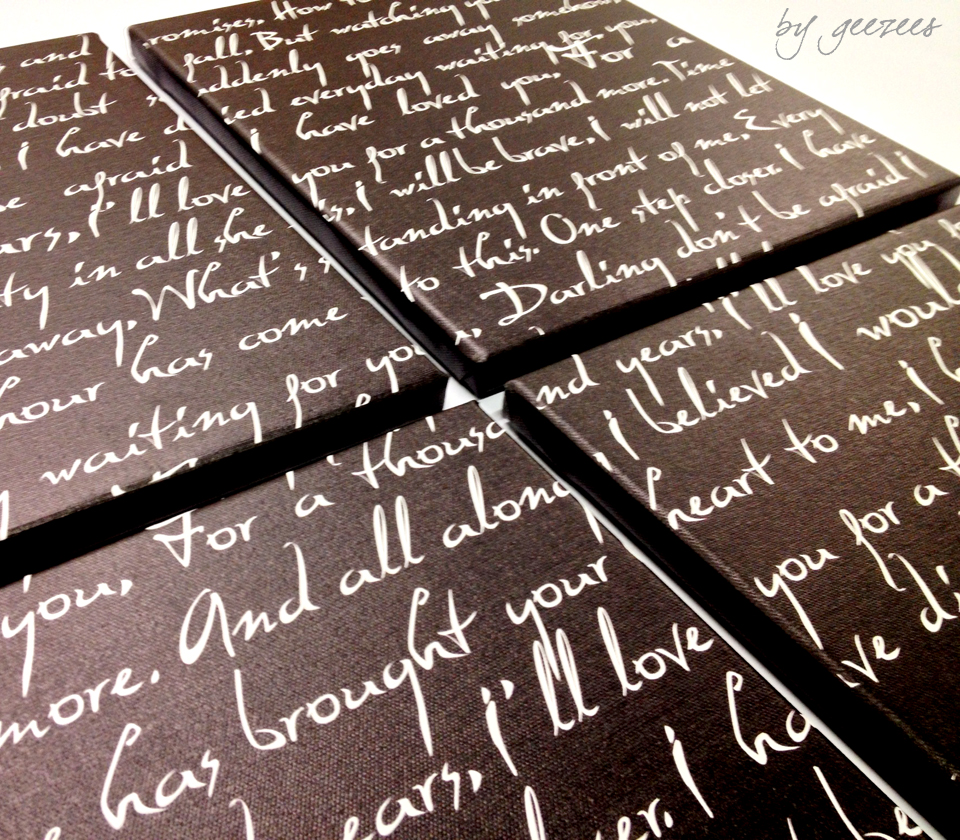 by geezees
romises. How
s and fall. But watching you
fraid to suddenly goes away somehow.
doubt died everyday waiting for you.
i have i have loved you, For a
be afraid you for a thousand more. Time
ars, i'll love is, i will be brave, i will not let
ty in all she standing in front of me. Every
away, What's to this. One step closer. i have
hour has come Darling don't be afraid i
waiting for you,
you, For a thousand years, i'll love you
more. And all along i believed i would
has brought your heart to me, i
ears, i'll love you for a
er. i have di
be